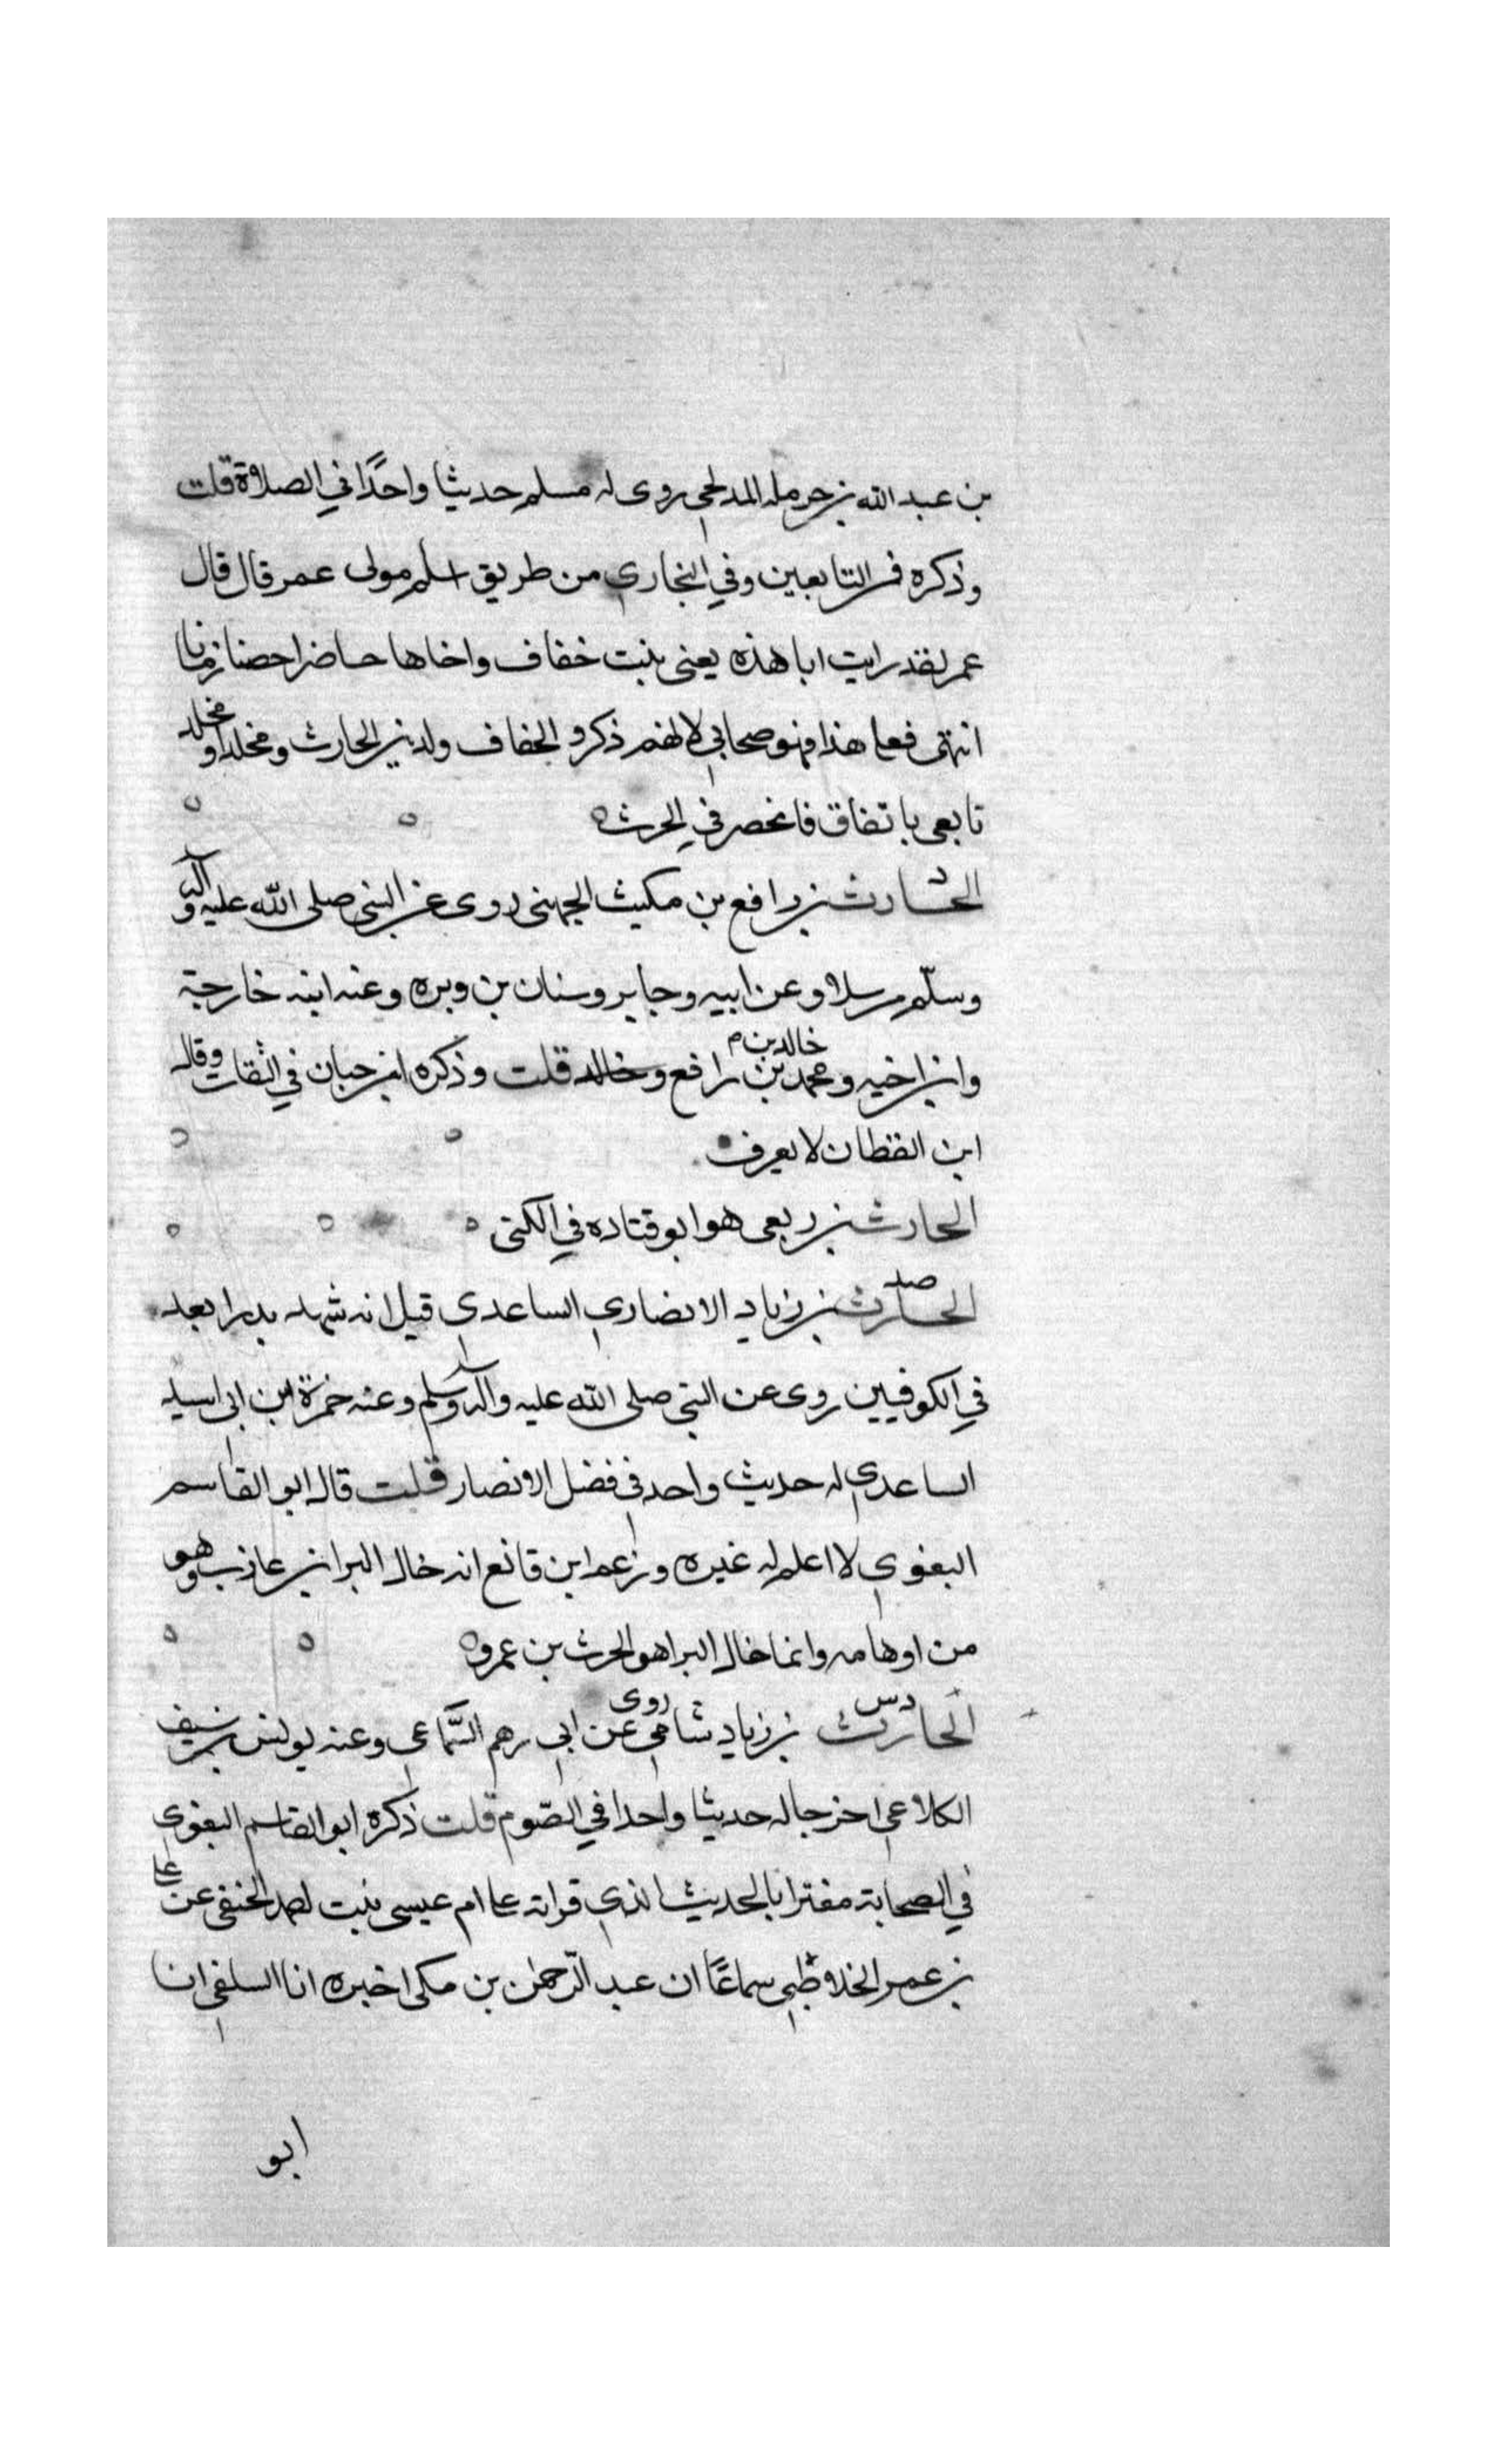 بن عبد الله بن حرمله المدلجي روى له مسلم حديثا واحدًا في الصلاة قلت
وذكره في التابعين وفي البخاري من طريق اسلم مولى عمر قال قال
عمر لقد رايت ابا هذه يعنى بنت خفاف واخاها حاضرا حصنا زمانا
انتهى فعلى هذا فهو صحابي لانهم ذكروا لخفاف ولدين الحارث ومخلدا ومخلد
تابعي باتفاق فانحصر في الحرث
الحارث بن رافع بن مكيث الجهني روى عن النبي صلى الله عليه وآله
وسلّم مرسلا وعن ابيه وجابر وسنان بن وبره وعنه ابنه خارجة
وابن اخيه ومحمد بن خالد بن رافع وخالد قلت وذكره ابن حبان في الثقات وقال
ابن القطان لا يعرف
الحارث بن ربعى هو ابو قتاده في الكنى
صد
الحارث بن زياد الانصاري الساعدي قيل انه شهد بدرا يعد
في الكوفيين روى عن النبي صلى الله عليه وآله وسلم وعنه حمزة ابن ابي اسيد
الساعدي له حديث واحد في فضل الانصار قلت قال ابو القاسم
البغوي لا اعلم له غيره وزعم ابن قانع انه خال البرا بن عازب وهو
من اوهامه وانما خال البرا هو الحرث بن عمرو
دس
الحارث بن زياد شامي روى عن ابي رهم السّماعي وعنه يونس بن سيف
الكلاعي اخرجا له حديثا واحدا في الصّوم قلت ذكره ابو القاسم البغوي
في الصحابة مغترا بالحديث الذي قراته على ام عيسى بنت احمد الحنفي عن على
بن عمر الخلاطي سماعًا ان عبد الرّحمن بن مكي اخبره انا السلفي انا
ابو